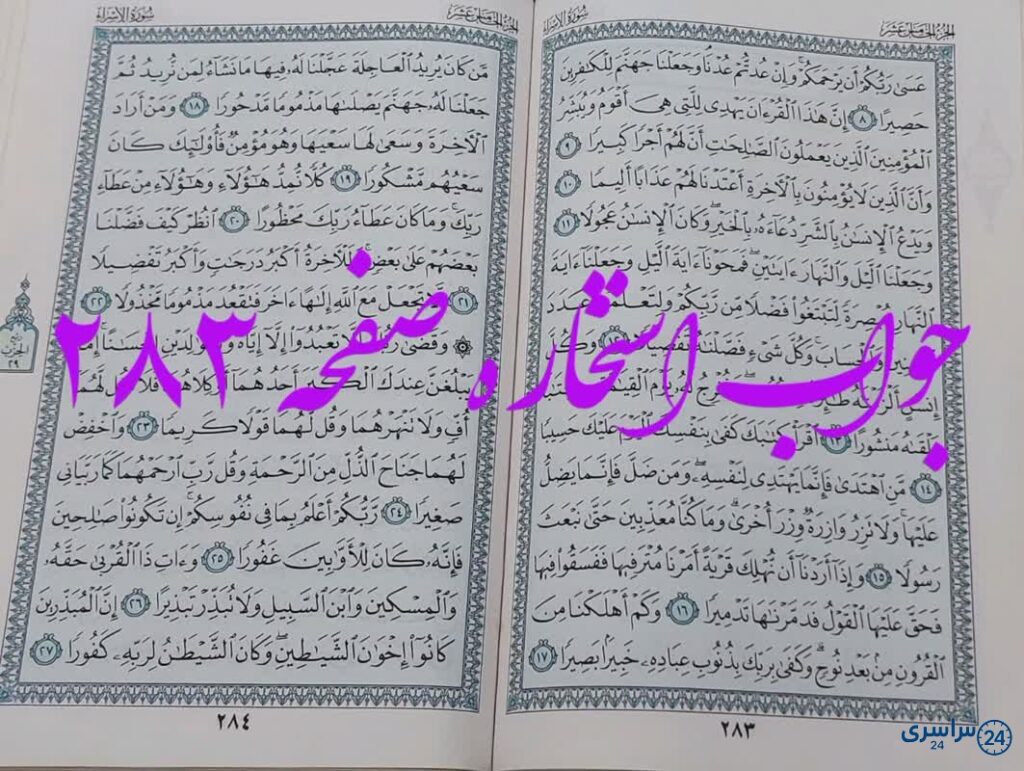 سُورَةُ الإِسْرَاءِ
الجُزْءُ الخَامِسَ عَشَرَ
عَسَىٰ رَبُّكُمْ أَن يَرْحَمَكُمْ ۚ وَإِنْ عُدتُّمْ عُدْنَا وَجَعَلْنَا جَهَنَّمَ لِلْكَٰفِرِينَ
حَصِيرًا ٨ إِنَّ هَٰذَا ٱلْقُرْءَانَ يَهْدِى لِلَّتِى هِىَ أَقْوَمُ وَيُبَشِّرُ
ٱلْمُؤْمِنِينَ ٱلَّذِينَ يَعْمَلُونَ ٱلصَّٰلِحَٰتِ أَنَّ لَهُمْ أَجْرًا كَبِيرًا ٩
وَأَنَّ ٱلَّذِينَ لَا يُؤْمِنُونَ بِٱلْءَاخِرَةِ أَعْتَدْنَا لَهُمْ عَذَابًا أَلِيمًا ١٠
وَيَدْعُ ٱلْإِنسَٰنُ بِٱلشَّرِّ دُعَآءَهُۥ بِٱلْخَيْرِ ۖ وَكَانَ ٱلْإِنسَٰنُ عَجُولًا ١١
وَجَعَلْنَا ٱلَّيْلَ وَٱلنَّهَارَ ءَايَتَيْنِ ۖ فَمَحَوْنَآ ءَايَةَ ٱلَّيْلِ وَجَعَلْنَآ ءَايَةَ
ٱلنَّهَارِ مُبْصِرَةً لِّتَبْتَغُوا۟ فَضْلًا مِّن رَّبِّكُمْ وَلِتَعْلَمُوا۟ عَدَدَ
وَٱلْحِسَابَ ۚ وَكُلَّ شَىْءٍ فَصَّلْنَٰهُ تَفْصِيلًا ١٢ وَكُلَّ
إِنسَٰنٍ أَلْزَمْنَٰهُ وَنُخْرِجُ لَهُۥ يَوْمَ ٱلْقِيَٰمَةِ
يَلْقَىٰهُ مَنشُورًا ١٣ ٱقْرَأْ كِتَٰبَكَ كَفَىٰ بِنَفْسِكَ ٱلْيَوْمَ عَلَيْكَ حَسِيبًا
١٤ مَّنِ ٱهْتَدَىٰ فَإِنَّمَا يَهْتَدِى لِنَفْسِهِۦ ۖ وَمَن ضَلَّ فَإِنَّمَا يَضِلُّ
عَلَيْهَا ۚ وَلَا تَزِرُ وَازِرَةٌ وِزْرَ أُخْرَىٰ ۗ وَمَا كُنَّا مُعَذِّبِينَ حَتَّىٰ نَبْعَثَ
رَسُولًا ١٥ وَإِذَآ أَرَدْنَآ أَن نُّهْلِكَ قَرْيَةً أَمَرْنَا مُتْرَفِيهَا فَفَسَقُوا۟ فِيهَا
فَحَقَّ عَلَيْهَا ٱلْقَوْلُ فَدَمَّرْنَٰهَا تَدْمِيرًا ١٦ وَكَمْ أَهْلَكْنَا مِنَ
ٱلْقُرُونِ مِنۢ بَعْدِ نُوحٍ ۗ وَكَفَىٰ بِرَبِّكَ بِذُنُوبِ عِبَادِهِۦ خَبِيرًۢا بَصِيرًا ١٧
٢٨٣
الجُزْءُ الخَامِسَ عَشَرَ
سُورَةُ الإِسْرَاءِ
مَّن كَانَ يُرِيدُ ٱلْعَاجِلَةَ عَجَّلْنَا لَهُۥ فِيهَا مَا نَشَآءُ لِمَن نُّرِيدُ ثُمَّ
جَعَلْنَا لَهُۥ جَهَنَّمَ يَصْلَىٰهَا مَذْمُومًا مَّدْحُورًا ١٨ وَمَنْ أَرَادَ
ٱلْءَاخِرَةَ وَسَعَىٰ لَهَا سَعْيَهَا وَهُوَ مُؤْمِنٌ فَأُو۟لَٰٓئِكَ كَانَ
سَعْيُهُم مَّشْكُورًا ١٩ كُلًّا نُّمِدُّ هَٰٓؤُلَآءِ وَهَٰٓؤُلَآءِ مِنْ عَطَآءِ
رَبِّكَ ۚ وَمَا كَانَ عَطَآءُ رَبِّكَ مَحْظُورًا ٢٠ ٱنظُرْ كَيْفَ فَضَّلْنَا
بَعْضَهُمْ عَلَىٰ بَعْضٍ ۚ وَلَلْءَاخِرَةُ أَكْبَرُ دَرَجَٰتٍ وَأَكْبَرُ تَفْضِيلًا
٢١ لَّا تَجْعَلْ مَعَ ٱللَّهِ إِلَٰهًا ءَاخَرَ فَتَقْعُدَ مَذْمُومًا مَّخْذُولًا ٢٢
۞ وَقَضَىٰ رَبُّكَ أَلَّا تَعْبُدُوٓا۟ إِلَّآ إِيَّاهُ وَبِٱلْوَٰلِدَيْنِ إِحْسَٰنًا ۚ إِمَّا
يَبْلُغَنَّ عِندَكَ ٱلْكِبَرَ أَحَدُهُمَآ أَوْ كِلَاهُمَا فَلَا تَقُل لَّهُمَآ
أُفٍّ وَلَا تَنْهَرْهُمَا وَقُل لَّهُمَا قَوْلًا كَرِيمًا ٢٣ وَٱخْفِضْ
لَهُمَا جَنَاحَ ٱلذُّلِّ مِنَ ٱلرَّحْمَةِ وَقُل رَّبِّ ٱرْحَمْهُمَا كَمَا رَبَّيَانِى
صَغِيرًا ٢٤ رَّبُّكُمْ أَعْلَمُ بِمَا فِى نُفُوسِكُمْ ۚ إِن تَكُونُوا۟ صَٰلِحِينَ
فَإِنَّهُۥ كَانَ لِلْأَوَّٰبِينَ غَفُورًا ٢٥ وَءَاتِ ذَا ٱلْقُرْبَىٰ حَقَّهُۥ
وَٱلْمِسْكِينَ وَٱبْنَ ٱلسَّبِيلِ وَلَا تُبَذِّرْ تَبْذِيرًا ٢٦ إِنَّ ٱلْمُبَذِّرِينَ
كَانُوٓا۟ إِخْوَٰنَ ٱلشَّيَٰطِينِ ۖ وَكَانَ ٱلشَّيْطَٰنُ لِرَبِّهِۦ كَفُورًا ٢٧
٢٨٤
ربع
الحزب
٢٩
جواب استخاره صفحه ٢٨٣
سراسری 24
24